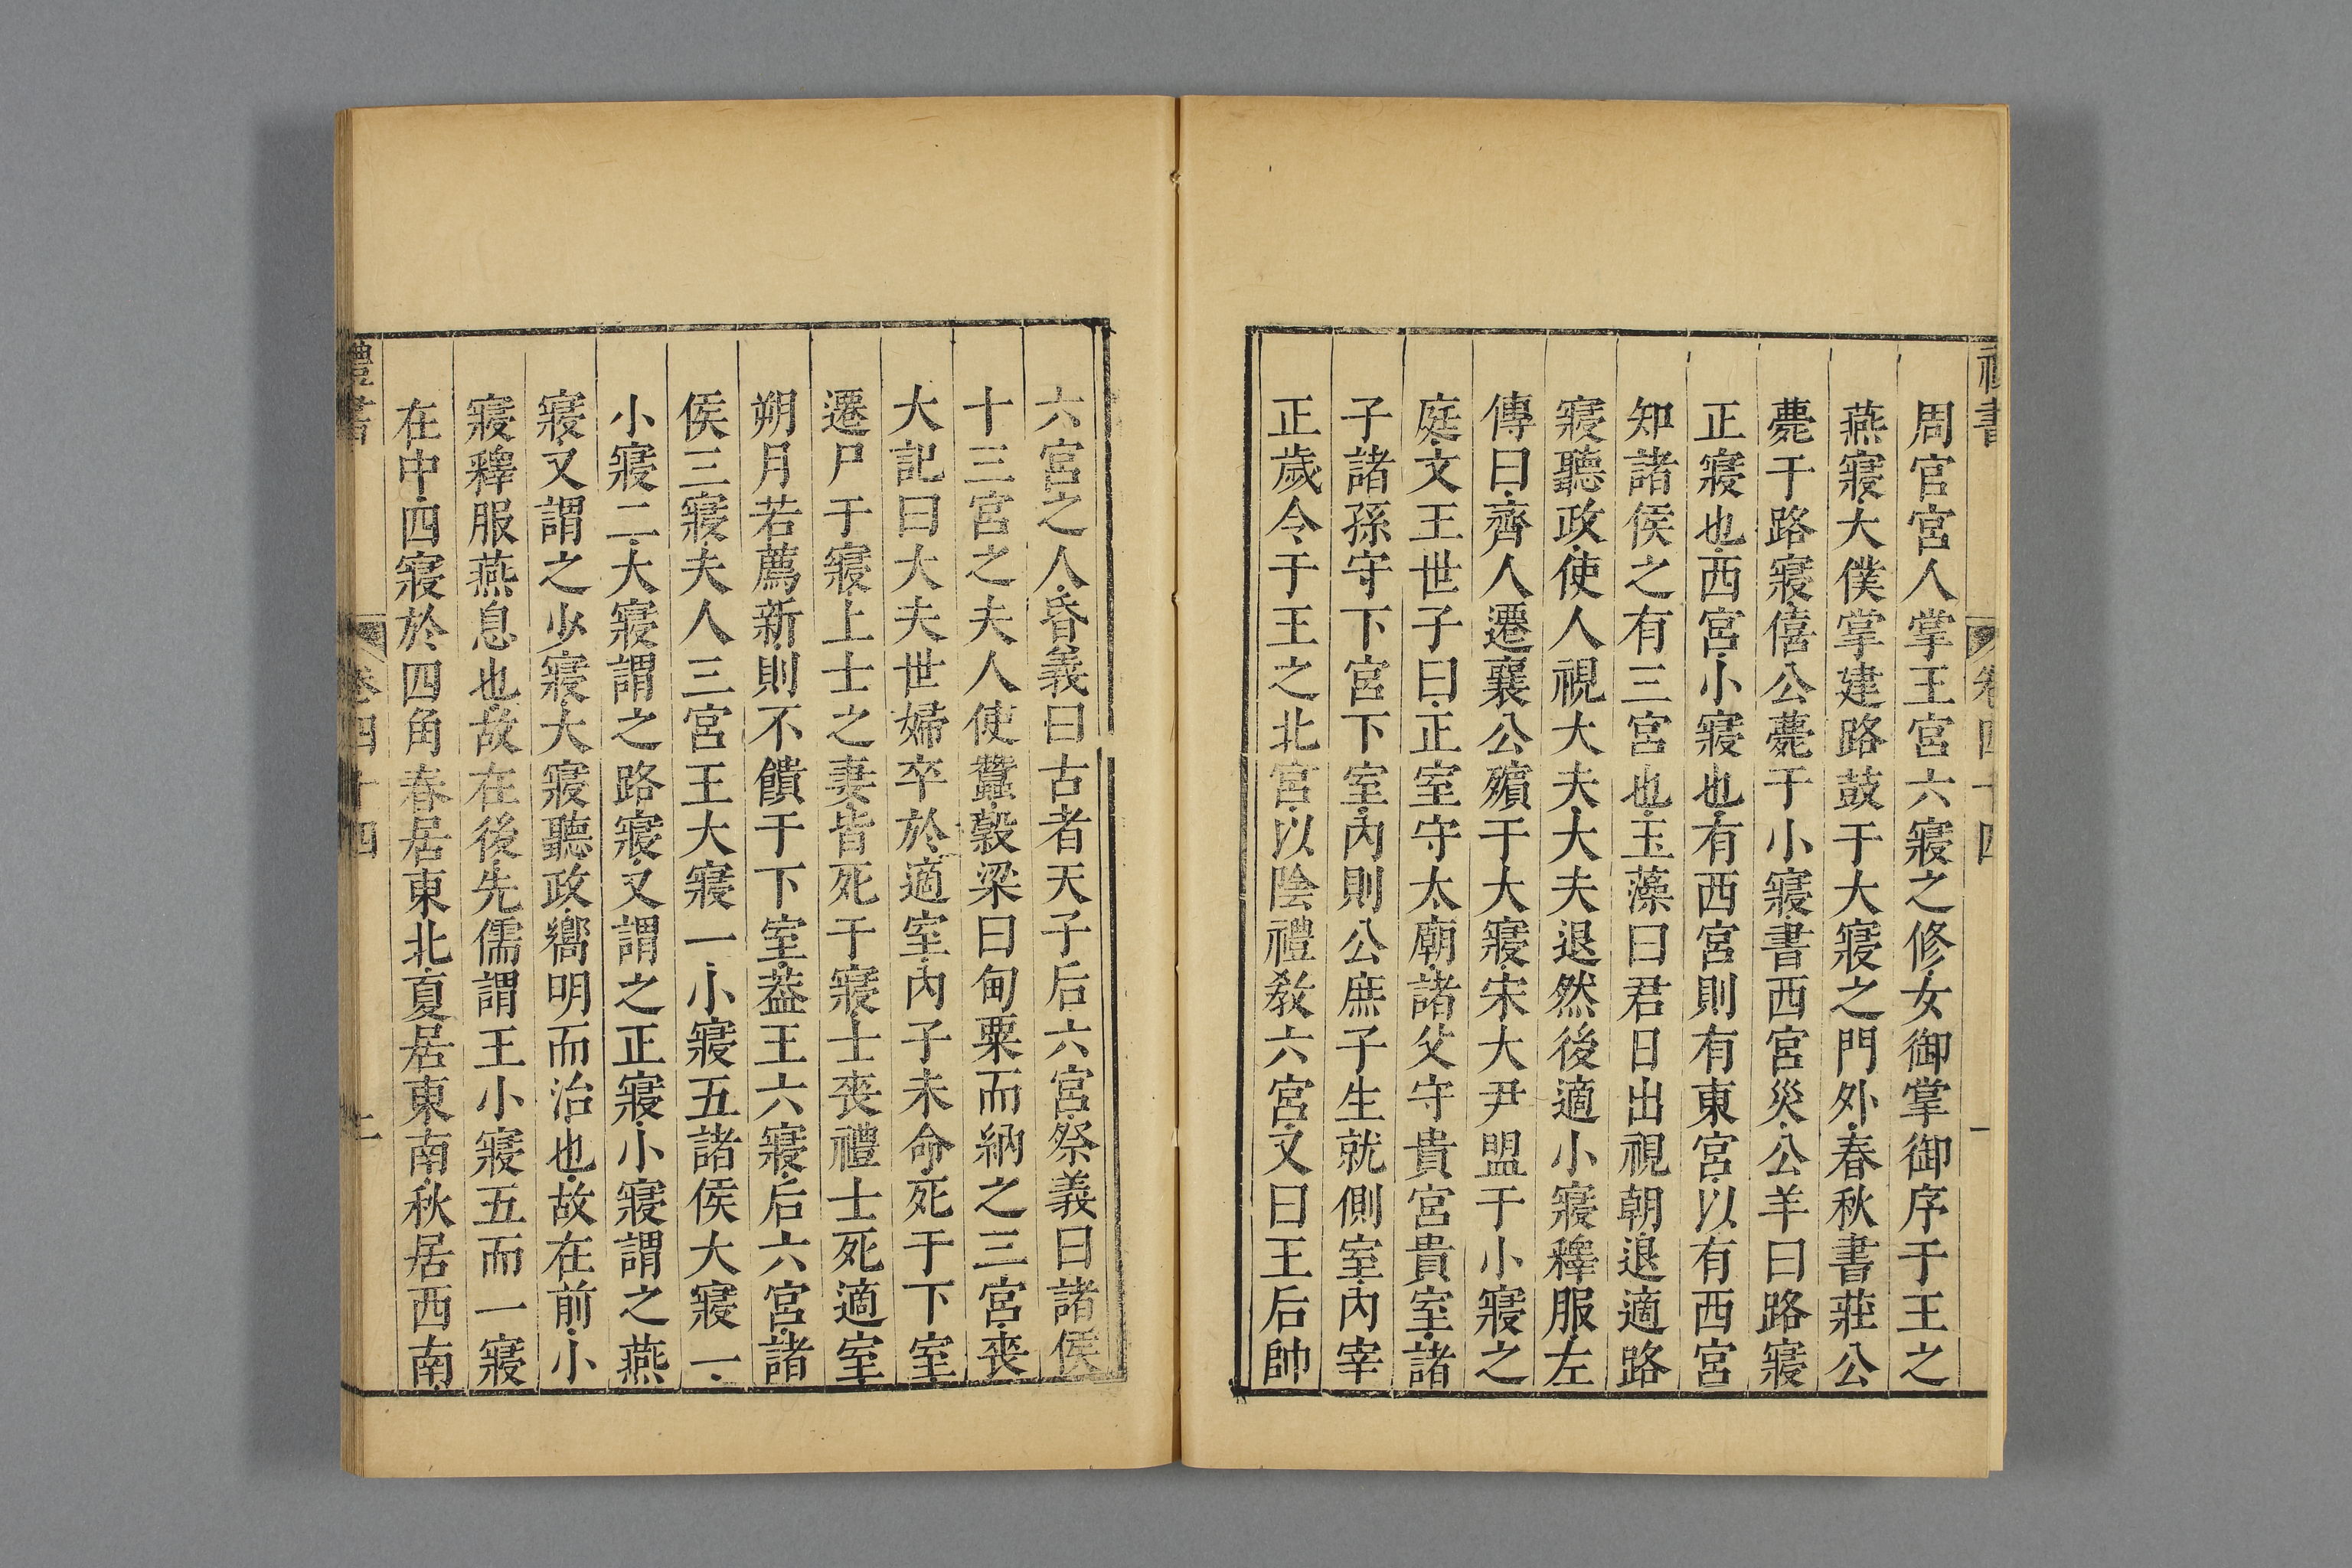 禮書 卷四十四 一
周官宮人掌王宮六寢之修女御掌御序于王之
燕寢大僕掌建路鼓于大寢之門外春秋書莊公
薨于路寢僖公薨于小寢書西宮災公羊曰路寢
正寢也西宮小寢也有西宮則有東宮以有西宮
知諸侯之有三宮也玉藻曰君日出視朝退適路
寢聽政使人視大夫大夫退然後適小寢釋服左
傳曰齊人遷襄公殯于大寢宋大尹盟于小寢之
庭文王世子曰正室守太廟諸父守貴宮貴室諸
子諸孫守下宮下室內則公庶子生就側室內宰
正歲令于王之北宮以陰禮教六宮又曰王后帥
六宮之人昏義曰古者天子后六宮祭義曰諸侯
十三宮之夫人使蠶穀梁曰甸粟而納之三宮喪
大記曰大夫世婦卒於適室內子未命死于下室
遷尸于寢上士之妻皆死于寢士喪禮士死適室
朔月若薦新則不饋于下室葢王六寢后六宮諸
侯三寢夫人三宮王大寢一小寢五諸侯大寢一
小寢二大寢謂之路寢又謂之正寢小寢謂之燕
寢又謂之少寢大寢聽政嚮明而治也故在前小
寢釋服燕息也故在後先儒謂王小寢五而一寢
在中四寢於四角春居東北夏居東南秋居西南
禮書 卷四十四 二